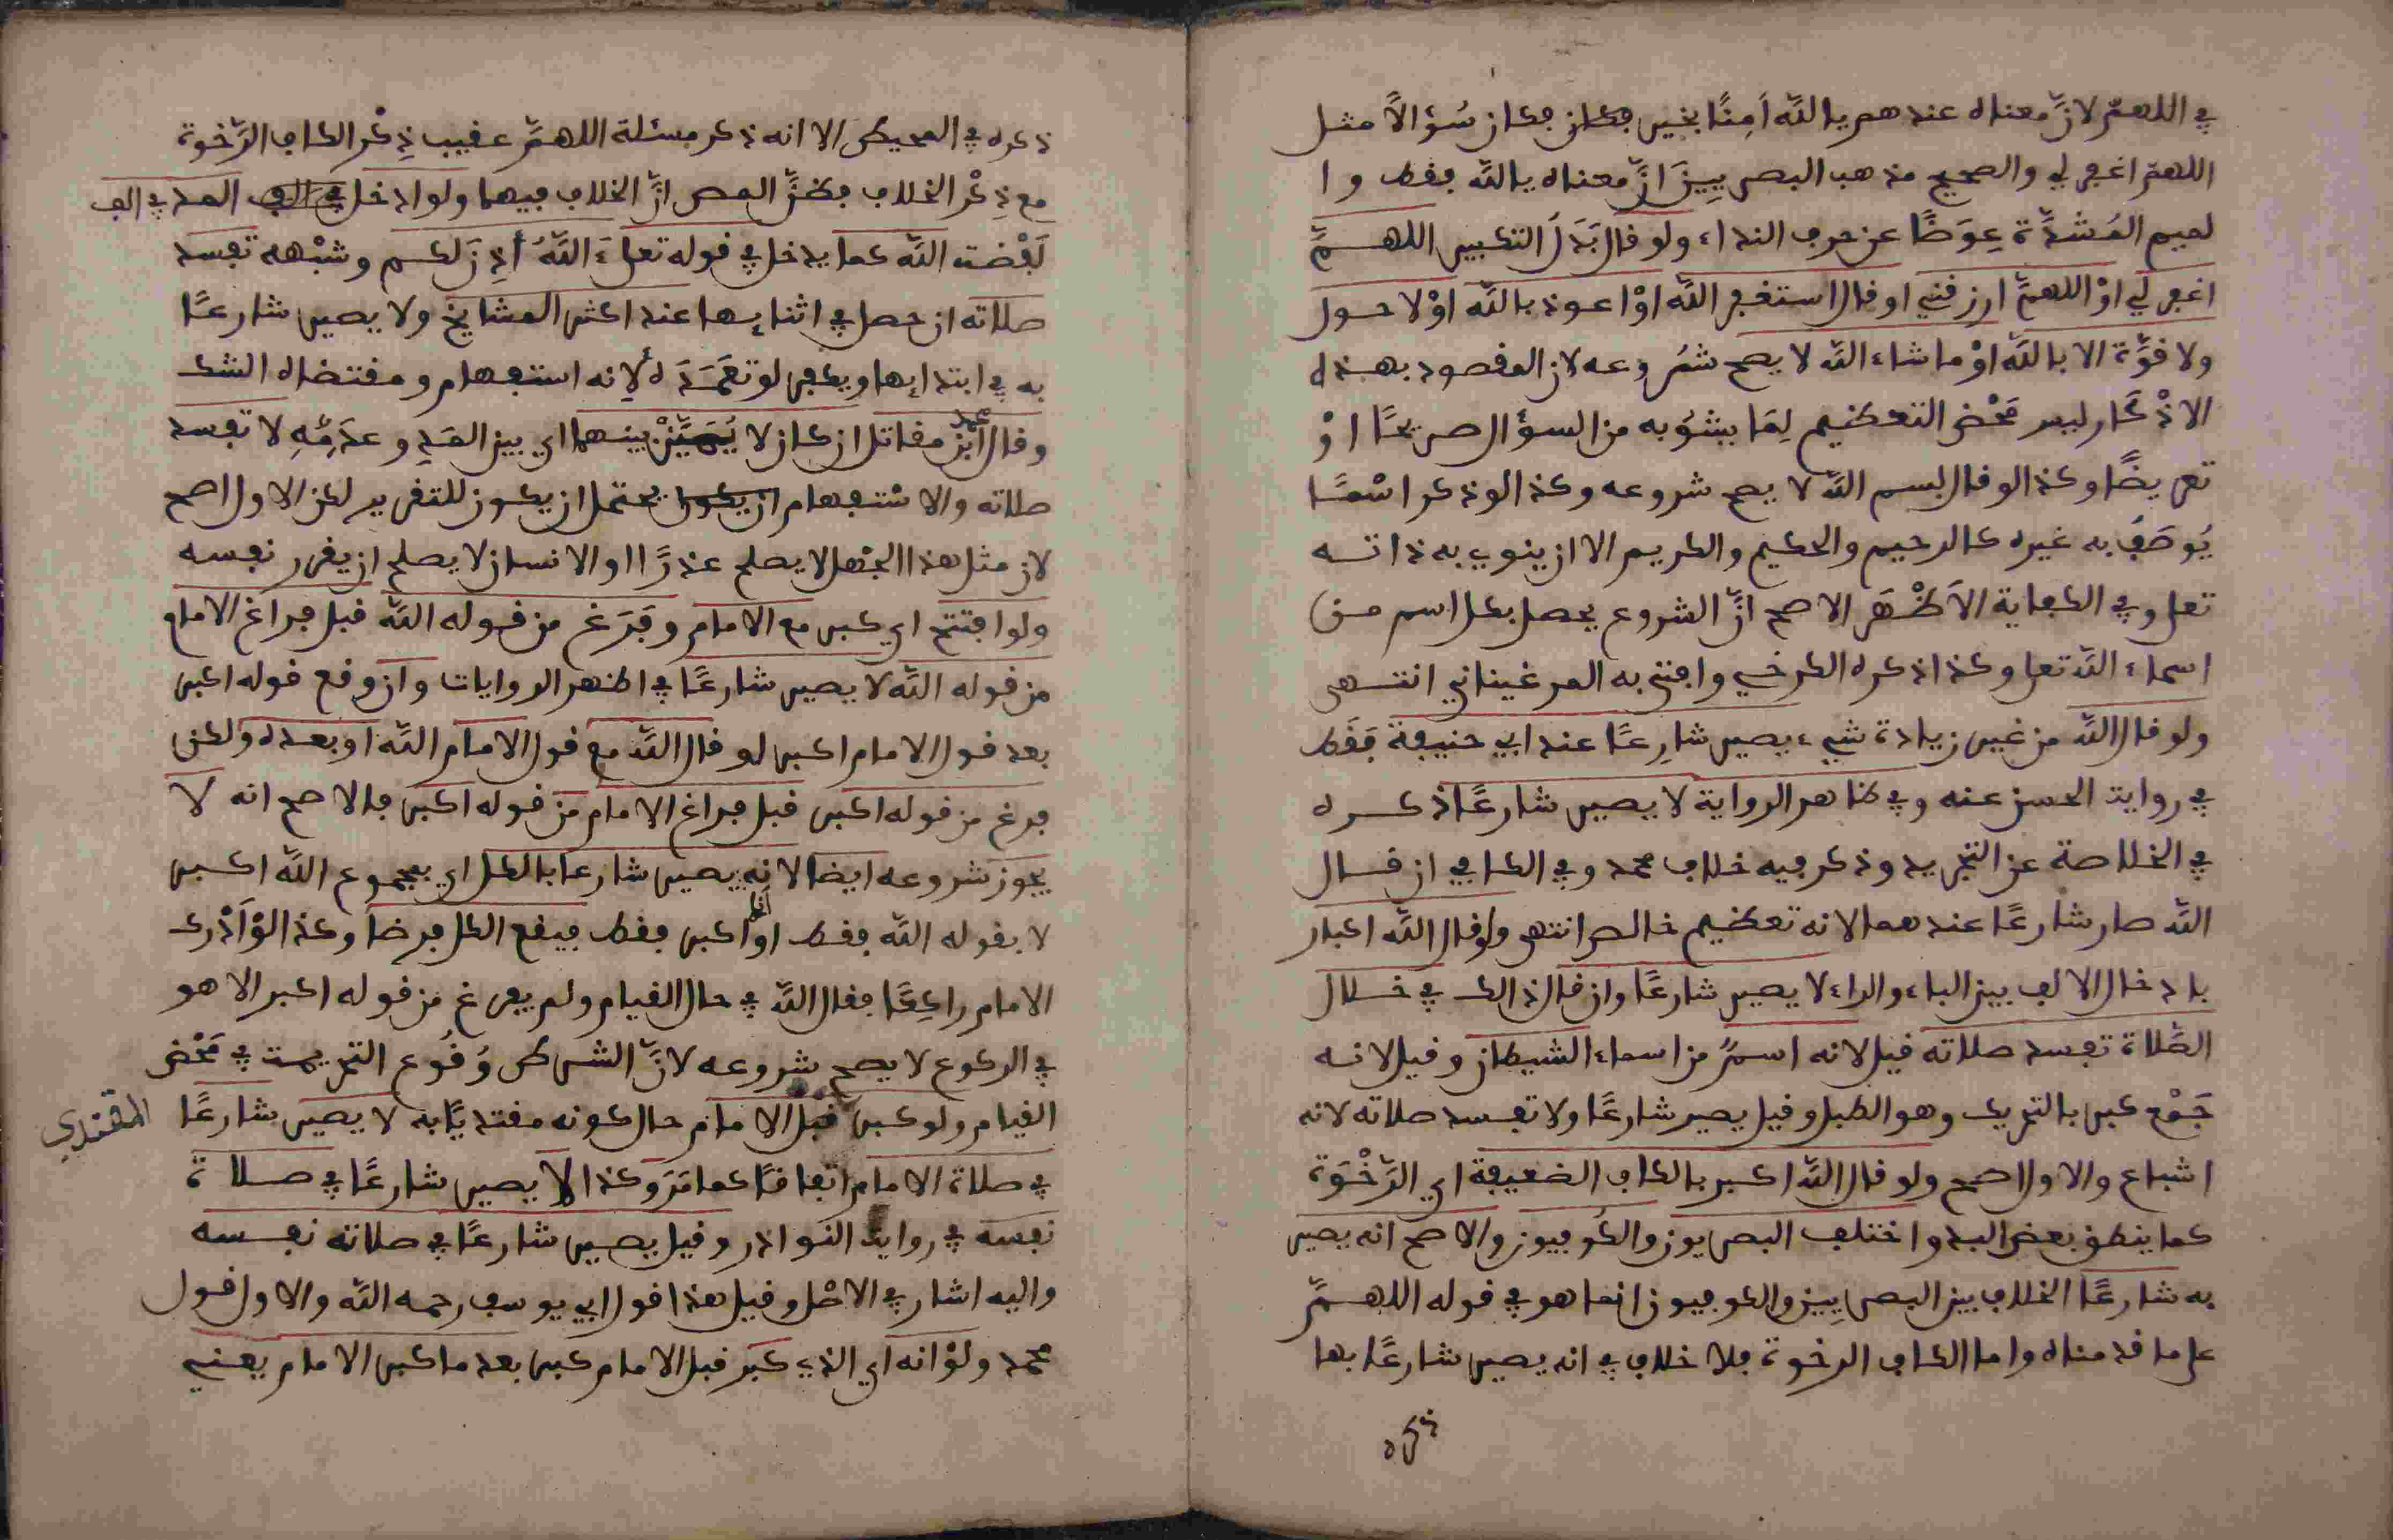 في اللهمّ لانّ معناه عندهم يا اللّه اَمِنَّا بخير فكان فكان سُؤالًا مثل
اللهمّ اغفر لي والصحيح مذهب البصريِينَ انّ معناه يا اللّه فقط وا
لميم المُشدَّدة عِوَضًا عن حرف النداء ولو قال بَدَلَ التكبير اللهمَّ
اغفر لي اوْ اللهمَّ ارزقني او قال استغفر اللّه اوْ اعوذ باللّه اوْ لا حول
ولا قوّة الا باللّه اوْ ما شاء اللّه لا يصح شُروعه لان المقصود بهذه
الاذْكَار ليس مَحْض التعظيم لِمَا يشُوبه من السؤال صريحًا اوْ
تعريضًا وكذا لو قال بسم اللّه لا يصح شروعه وكذا لو ذكر اسْمًا
يُوصَف به غيره كالرحيم والحكيم والكريم الا ان ينوي به ذاته
تعلى وفي الكفاية الاَظْهَر الاصح انّ الشروع يحصل بكل اسم من
اسماء اللّه تعلى وكذا ذكره الكرخي وافتى به المرغيناني انتهى
ولو قال اللّه من غير زيادة شيء يصير شارِعًا عند ابي حنيفة فَقَط
في رواية الحسن عنه وفي ظاهر الرواية لا يصير شارعًا ذكره
في الخلاصة عن التجريد وذكر فيه خلاف محمد وفي الكافي ان قال
اللّه صار شارعًا عندهما لانه تعظيم خالص انتهى ولو قال اللّه اكبار
بادخال الالف بين الباء والراء لا يصير شارعًا وان قال ذالك في خلال
الصّلاة تفسد صلاته قيل لانه اسمٌ من اسماء الشيطان وقيل لانه
جَمْع كبر بالتحريك وهو الطبل وقيل يصير شارعًا ولا تفسد صلاته لانه
اشباع والاول اصح ولو قال اللّه اكبر بالكاف الضعيفة اي الرَّخْوَة
كما ينطق بعض البدو اختلف البصريون والكُوفيون والاصح انه يصير
به شارعًا الخلاف بين البصريِين والكوفيون انما هو في قوله اللهمَّ
على ما قدمناه واما الكاف الرخوة فلا خلاف في انه يصير شارعًا بها
ذكره
ذكره في المحيط الا انه ذكر مسئلة اللهمَّ عقيب ذِكْر الكاف الرَّخوة
مع ذِكْر الخلاف فظنَّ المص انَّ الخلاف فيهما ولو ادخل في الف المد في الف
لَفْظت اللّه كما يدخل في قوله تعلىَ اللّهُ أذِنَ لكم وشبْهه تفسد
صلاته ان حصل في اثنايِها عند اكثر المشايخ ولا يصير شارعًا
به في ابتدايِها ويكفر لو تعَمَّدَه لأنه استفهام ومقتضاه الشك
وقال محمد ابن مقاتل ان كان لا يُمَيِّزْ بينهما اي بين المَدِ وعدَمِهِ لا تفسد
صلاته والاسْتفهام ان يكون يحتمل ان يكون للتقرير لكن الاول اصح
لان مثل هذا الجْهل لا يصلح عذرًا او الانسان لا يصلح ان يقرر نفسه
ولو افتتح اي كبر مع الامام وفَرَغ من قوله اللّه قبل فراغ الامام
من قوله اللّه لا يصير شارعًا في اظهر الروايات وان وقع قوله اكبر
بعد قول الامام اكبر لو قال اللّه مع قول الامام اللّه او بعده ولكن
فرغ من قوله اكبر قبل فراغ الامام من قوله اكبر فالاصح انه لا
يجوز شروعه ايضا لانه يصير شارعا بالكل اي بمجموع اللّه اكبر
لا بقوله اللّه فقط او اكبر فقط فيقع الكل فرضا وكذا لوْ اَدْرك
الامام راكِعًا فقال اللّه في حال القيام ولم يفرغ من قوله اكبر الا هو
في الركوع لا يصح شروعه لانّ الشرط وُقُوع التحريمة في مَحْض
القيام ولو كبر قبل الامام حال كونه مقتديًا به لا يصير شارعًا المقتدي
في صلاة الامام اتفاقًا كما مَرَ وكذا لا يصير شارعًا في صلاة
نفسه في رواية النَوادر وقيل يصير شارعًا في صلاته نفسه
واليه اشار في الاصْل وقيل هذا قول ابي يوسف رحمه اللّه والاول قول
محمد ولوْ انه اي الذي كبّر قبل الامام كبر بعد ما كبر الامام يعني